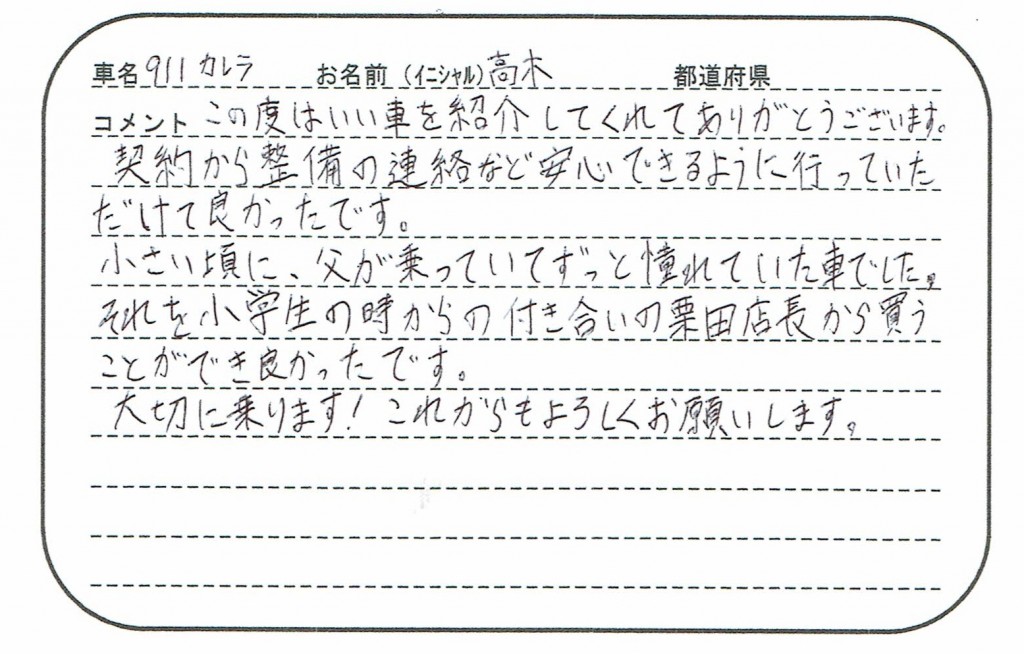 車名 911 カレラ お名前 (イニシャル) 高木 都道府県
コメント この度はいい車を紹介してくれてありがとうございます。
契約から整備の連絡など安心できるように行っていた
だけて良かったです。
小さい頃に、父が乗っていてずっと憧れていた車でした。
それを小学生の時からの付き合いの栗田店長から買う
ことができ良かったです。
大切に乗ります! これからもよろしくお願いします。